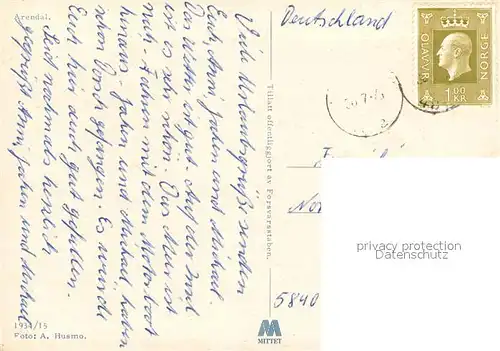 Arendal.
Viele Urlaubsgrüße senden
Euch, Anni, Jahn und Michael
Das Wetter ist gut. Auf der Insel
ist es sehr schön. Das Meer ist
mit. Fahren mit dem Motorboot
hinaus. Jahn und Michael haben
schon Dorsch gefangen. Es würde
Euch hier auch gut gefallen.
Seid nochmals herzlich
gegrüßt Anni, Jahn und Michael
1934/15
Foto: A. Husmo.
Tillatt offentliggjort av Forsvarsstaben.
MITTET
Deutschland
OLAV V R
NORGE
1.00
KR
5840
privacy protection
Datenschutz